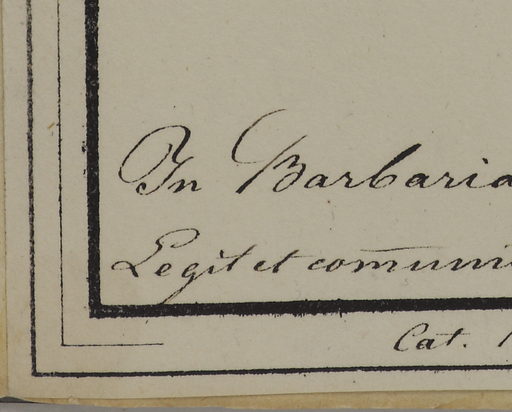 In Barbaria
Legit et com̅uni
Cat.